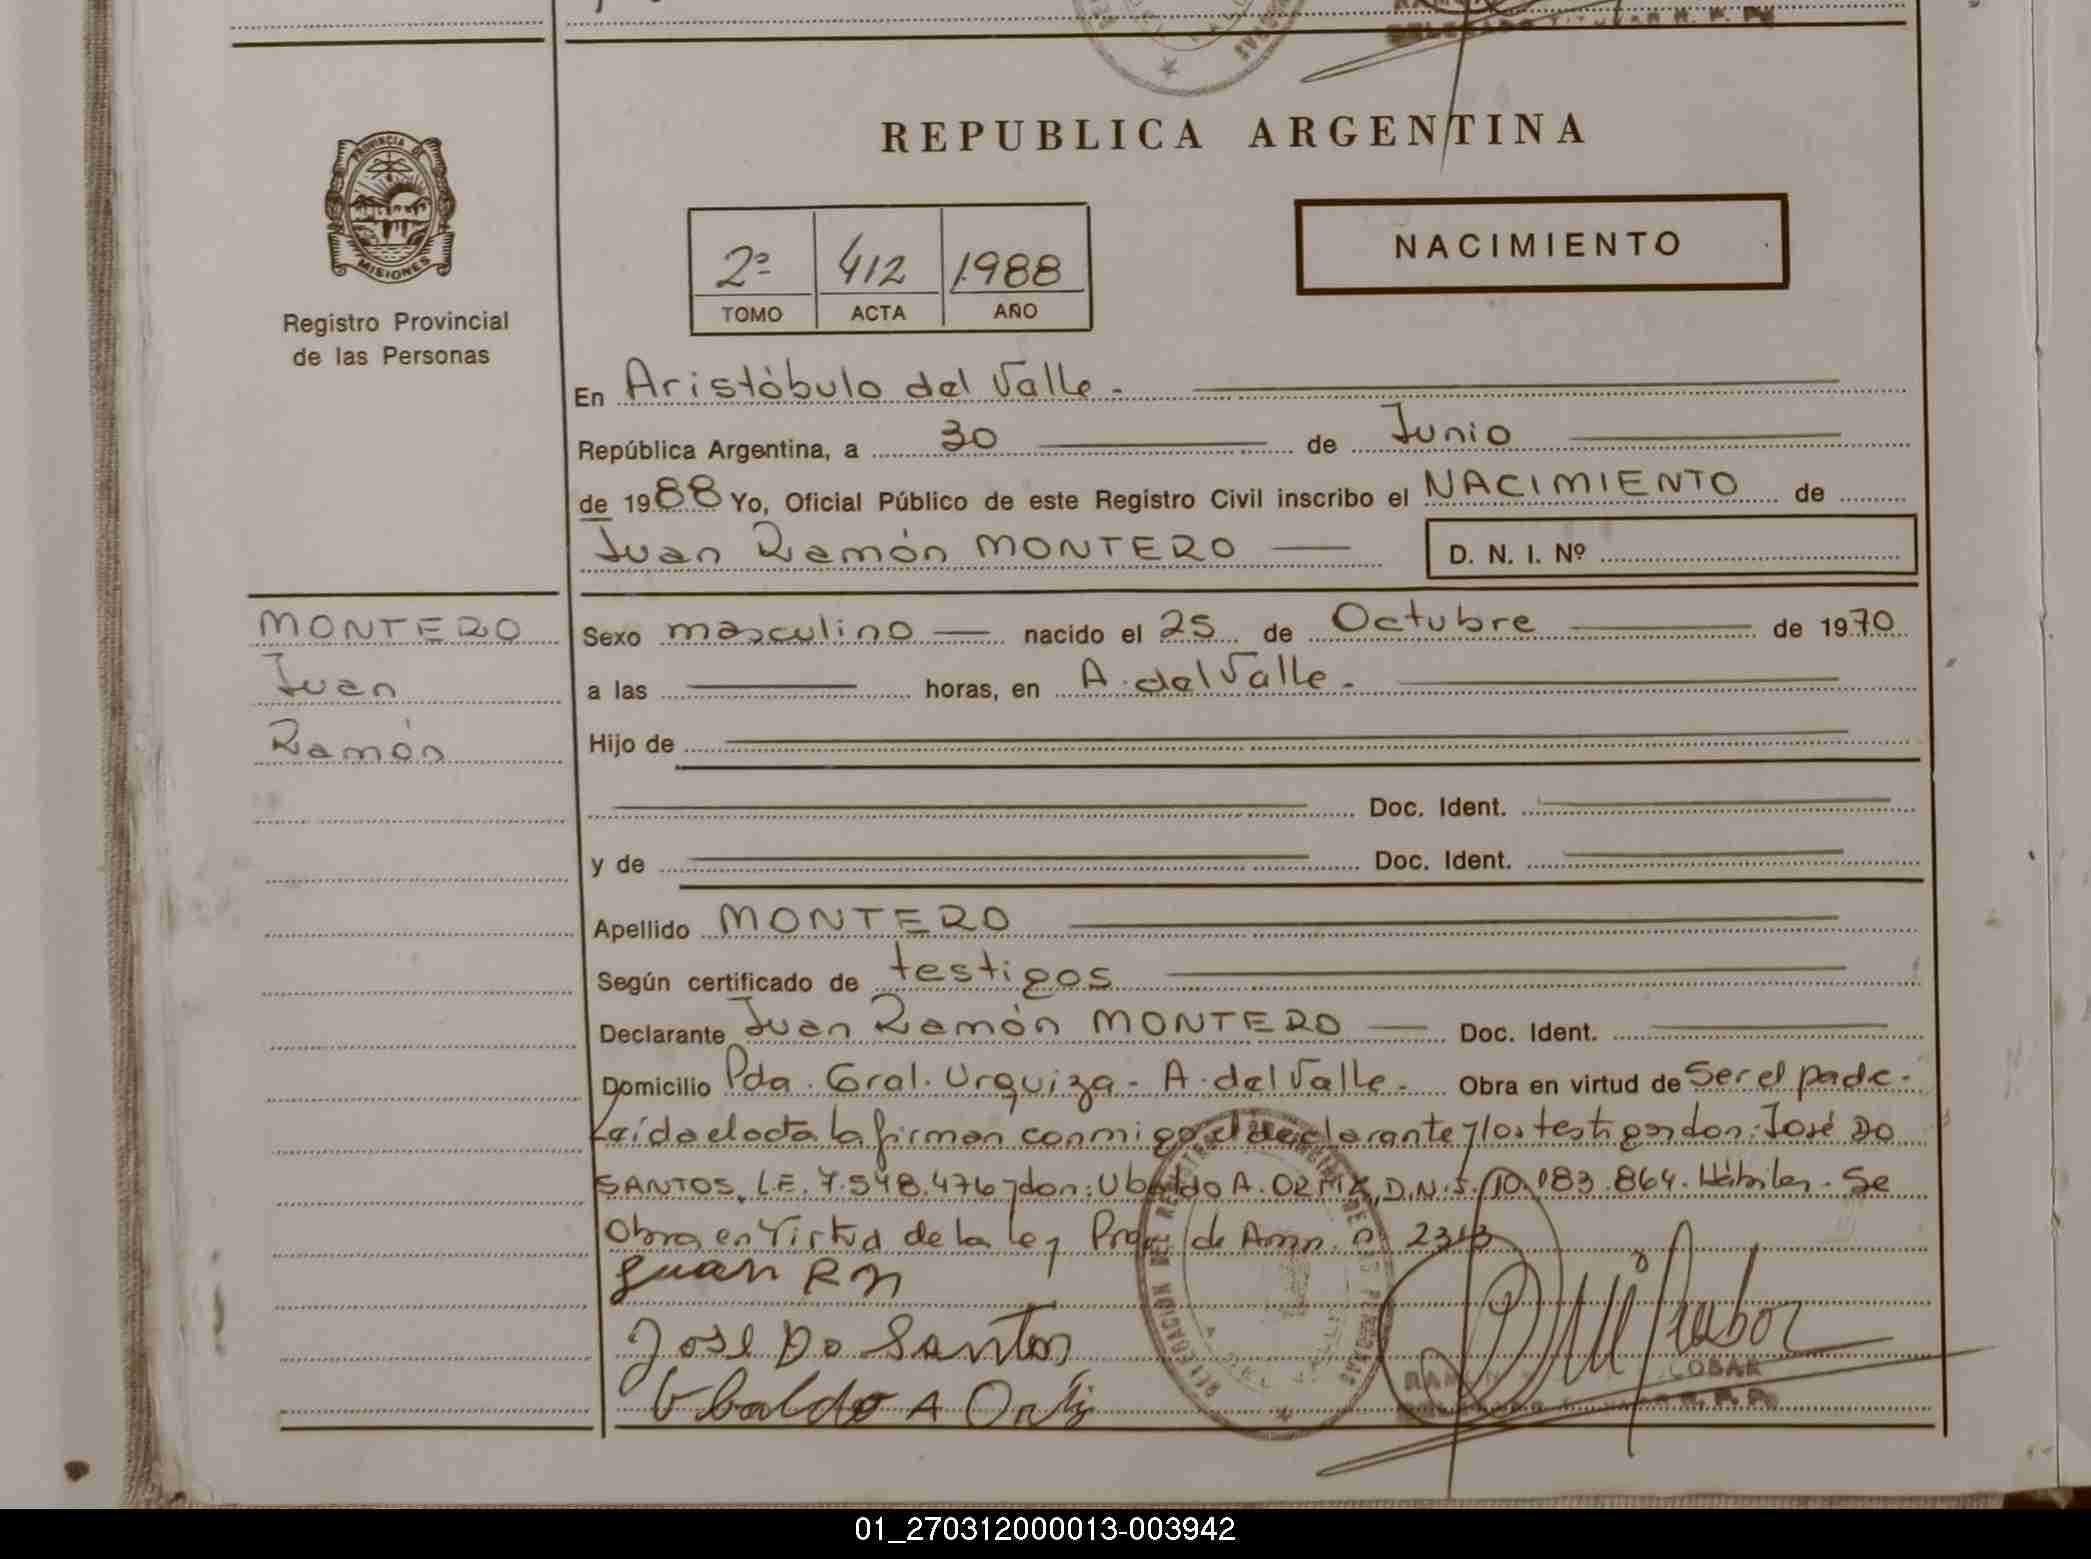 REPUBLICA ARGENTINA
PROVINCIA DE
MISIONES
Registro Provincial
de las Personas
2º 412 1988
TOMO ACTA AÑO
NACIMIENTO
En Aristóbulo del Valle.-
República Argentina, a 30 de Junio
de 1988 Yo, Oficial Público de este Registro Civil inscribo el NACIMIENTO de
Juan Ramón MONTERO D. N. I. Nº
MONTERO
Juan
Ramón
Sexo masculino nacido el 25 de Octubre de 1970
a las horas, en A. del Valle.-
Hijo de
Doc. Ident.
y de Doc. Ident.
Apellido MONTERO
Según certificado de testigos
Declarante Juan Ramón MONTERO Doc. Ident.
Domicilio Pda. Gral. Urquiza - A. del Valle.- Obra en virtud de Ser el
Leída el acta la firman conmigo el declarante y los testigos don: José DO
SANTOS, L.E. 7.548.476 y don: Ubaldo A. ORTIZ, D.N.I. 10.083.864. Hábiles. Se
Obra en Virtud de la ley de n° 2313
Juan R M
José Do Santos
Ubaldo A Ortiz
DELEGACION DEL REGISTRO PROVINCIAL DE LAS PERSONAS
RAMON ESCOBAR
DELEGADO TITULAR R. P. P.
01_270312000013-003942